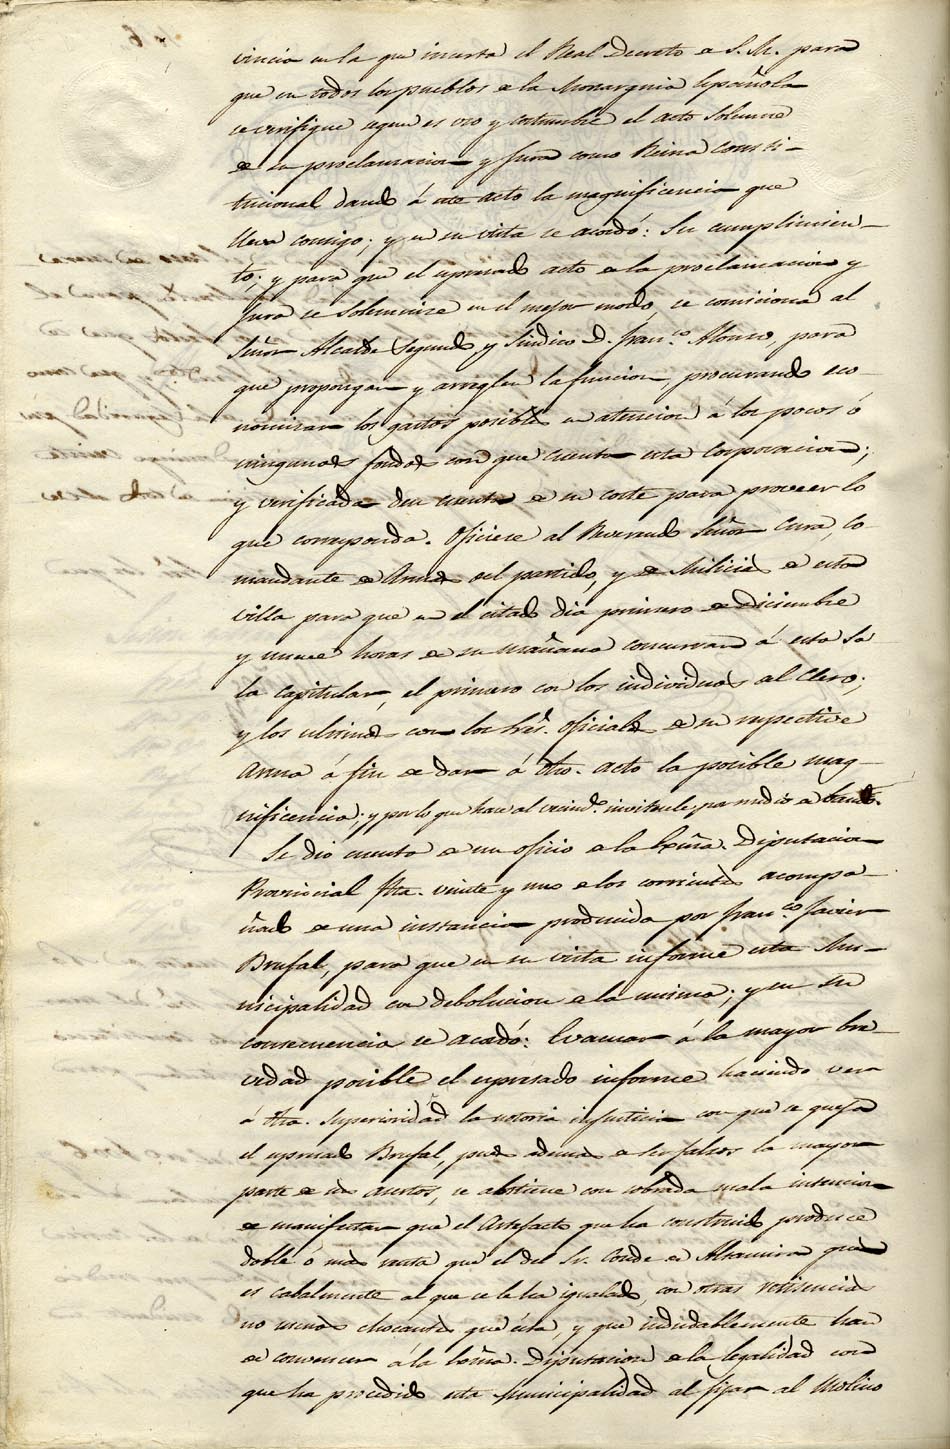 vincia en la que inserta el Real Decreto de S. M. para
que en todos los pueblos de la Monarquia Española
se verifique segun es uso y costumbre el acto solemne
de su proclamacion y jura como Reina Consti-
tucional dando á este acto la magnificencia que
lleva consigo; y en su vista se acordó: Su cumplimien-
to; y para que el espresado acto de la proclamacion y
Jura se solemnise en el mejor modo, se comisiona al
Señor Alcalde Segundo y Sindico D. Fran.co Alonso, para
que propongan y arreglen la funcion, procurando eco-
nomizar los gastos posibles en atencion á los pocos ó
ningunos fondos con que cuenta esta Corporacion;
y verificada den cuenta de su coste para proveer lo
que corresponda. Oficiese al Reverendo Señor Cura, Co-
mandante de Armas del partido, y de Milicias de esta
villa para que en el citado dia primero de Diciembre
y nueve horas de su mañana concurran á esta Sa
la Capitular, el primero con los individuos del Clero;
y los ultimos con los Sres. oficiales de su respective
Arma á fin de dar á dho. acto la posible mag-
nificencia; y por lo que hace al vecind.o invitesele por medio de bando.
Se dió cuenta de un oficio de la Exma. Diputacion
Provincial fha. veinte y uno de los corrientes acompa-
ñado de una instancia producida por Fran.co Javier
Brufal, para que en su vista informe esta Mu-
nicipalidad con debolucion de la misma; y en su
consecuencia se acordó: Evacuar á la mayor bre
vedad posible el espresado informe haciendo ver
á dha. Superioridad la notoria injusticia con que se queja
el espresado Brufal, pues ademas de ser falsos la mayor
parte de sus asertos, se abstiene con sobrada mala intencion
de manifestar que el Artefacto que ha construido produce
doble ó mas renta que el del Sr. Conde de Altamira que
es cabalmente al que se le ha igualado, con otras retisencias
no menos chocantes que esta, y que indudablemente han
de convencer á la Exma. Diputacion de la legalidad con
que ha procedido esta Municipalidad al fijar al Molino